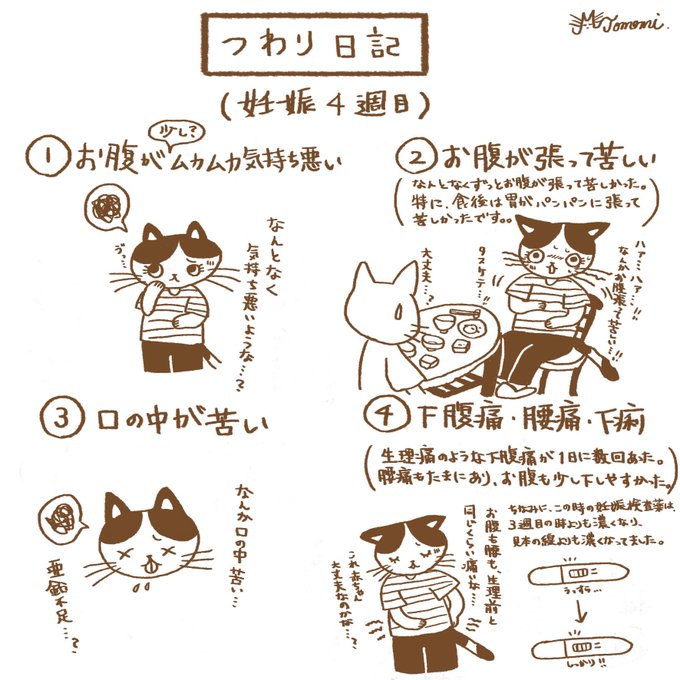 Tomomi.
つわり日記
(妊娠4週目)
少し?
① お腹がムカムカ気持ち悪い
ゔっ…
なんとなく
気持ち悪いような…?
② お腹が張って苦しい
(なんとなくずっとお腹が張って苦しかった。
特に、食後は胃がパンパンに張って
苦しかったです。。)
大丈夫…?
タスケテ…!!
ハァ…ハァ…!!
なんかお腹張って苦しい…!!
③ 口の中が苦い
なんか口の中苦い…
亜鉛不足…?
④ 下腹痛・腰痛・下痢
(生理痛のような下腹痛が1日に数回あった。
腰痛もたまにあり、お腹も少し下しやすかった。)
お腹も腰も、生理前と
同じくらい痛いな…
これ赤ちゃん
大丈夫なのかな…?
ちなみに、この時の妊娠検査薬は、
3週目の時よりも濃くなり、
見本の線よりも濃くなってました。
うっすら…
しっかり!!